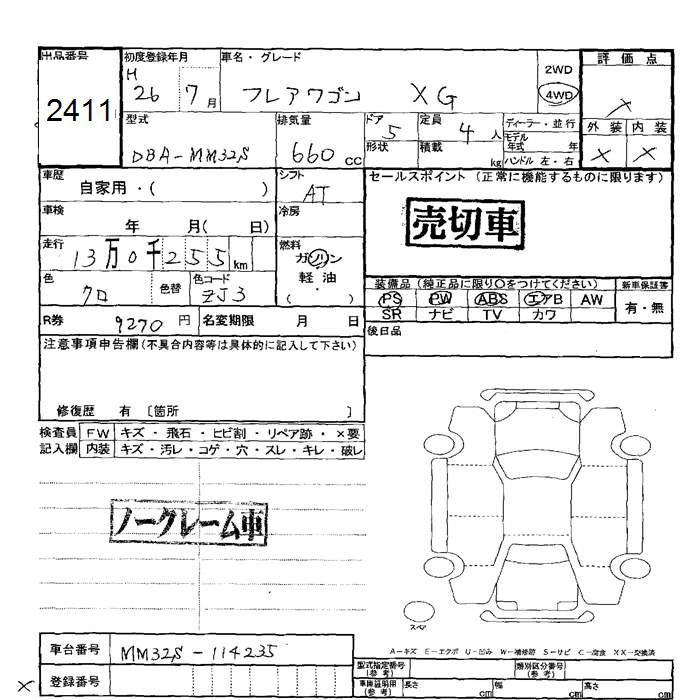 出品番号
2411
初度登録年月
H 26 7月
車名・グレード
フレアワゴン XG
2WD
4WD
評価点
×
外装 内装
× ×
型式
DBA-MM32S
排気量
660 cc
ドア
5
形状
定員
4 人
積載
kg
ディーラー・並行
モデル年式 年
ハンドル 左・右
車歴
自家用・( )
シフト
AT
セールスポイント (正常に機能するものに限ります)
売切車
車検
年 月( 日)
冷房
走行
13万0千255km
燃料
ガソリン
軽油
( )
色
クロ
色替
色コード
ZJ3
装備品 (純正品に限り〇をつけてください)
新車保証書
PS PW ABS エアB AW
SR ナビ TV カワ
有・無
R券 9270 円
名変期限 月 日
後日品
注意事項申告欄 (不具合内容等は具体的に記入して下さい)
修復歴 有 [箇所 ]
検査員記入欄
FW キズ・飛石・ヒビ割・リペア跡・×要
内装 キズ・汚レ・コゲ・穴・スレ・キレ・破レ
ノークレーム車
スペア
A-キズ E-エクボ U-凹み W-補修跡 S-サビ C-腐食 XX-交換済
車台番号
MM32S-114235
× 登録番号
型式指定番号 (参考)
類別区分番号 (参考)
車検証明用 (参考)
長さ cm
幅 cm
高さ cm